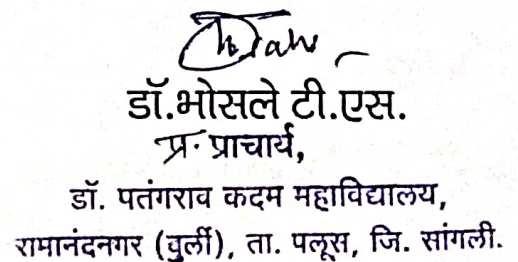 डॉ.भोसले टी.एस.
प्र. प्राचार्य,
डॉ. पतंगराव कदम महाविद्यालय,
रामानंदनगर (वुर्ली), ता. पलूस, जि. सांगली.